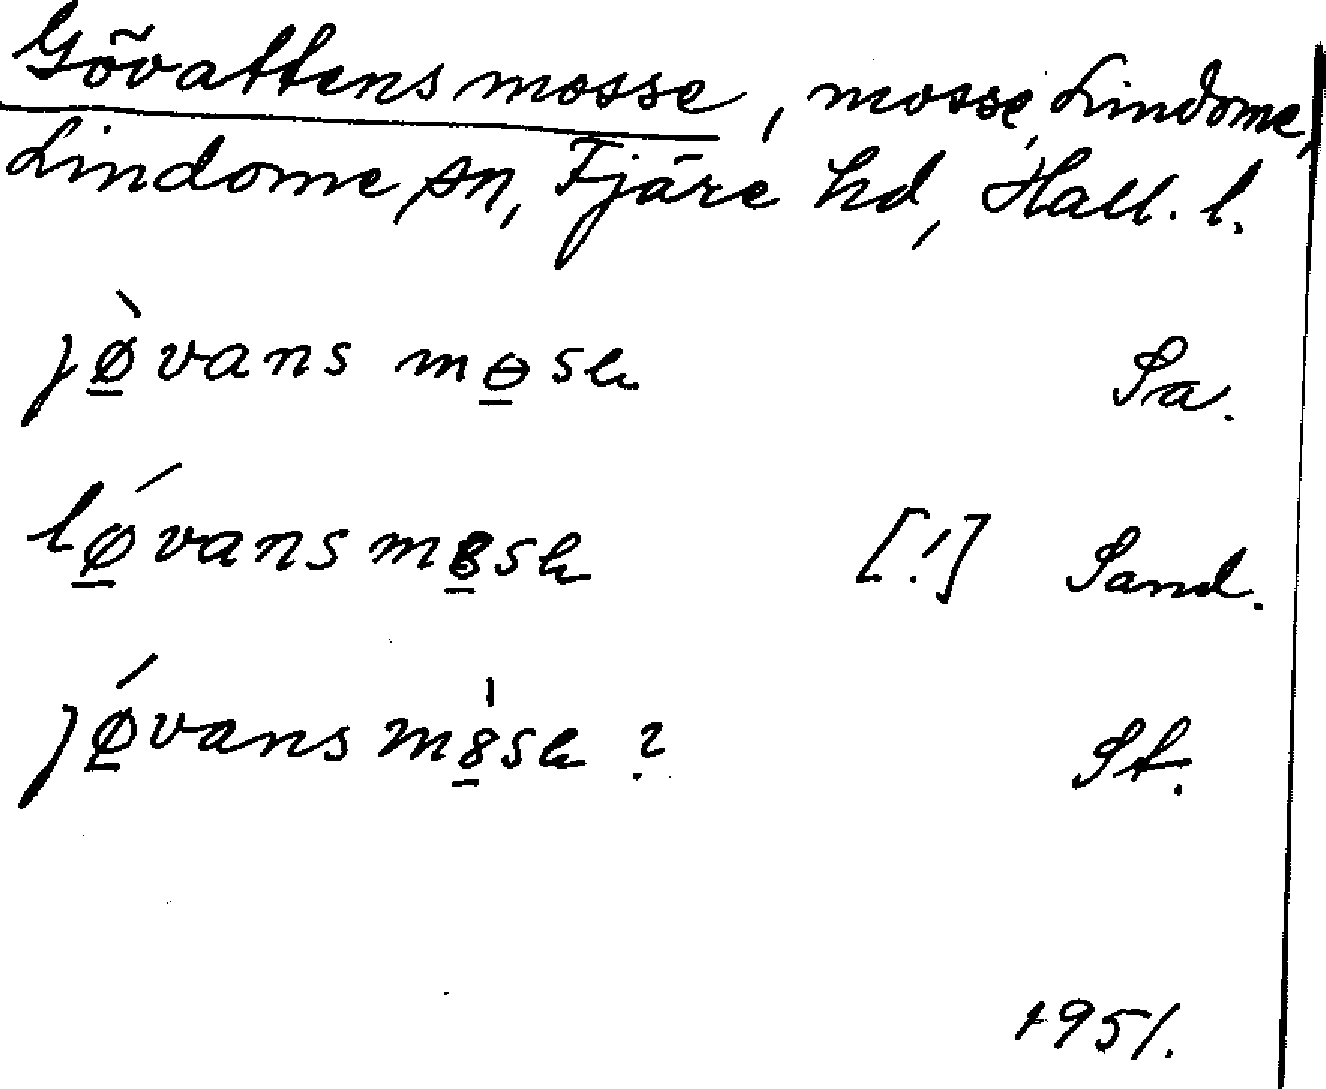 Gövattens mosse, mosse, Lindome,
Lindome sn, Fjäre hd, Hall. l.
jø̲̀vans mɵ̲sɛ Sa.
lǿ̲vansm8̲sɛ [!] Sand.
jǿ̲vansm8̲̍sɛ ? St.
1951.